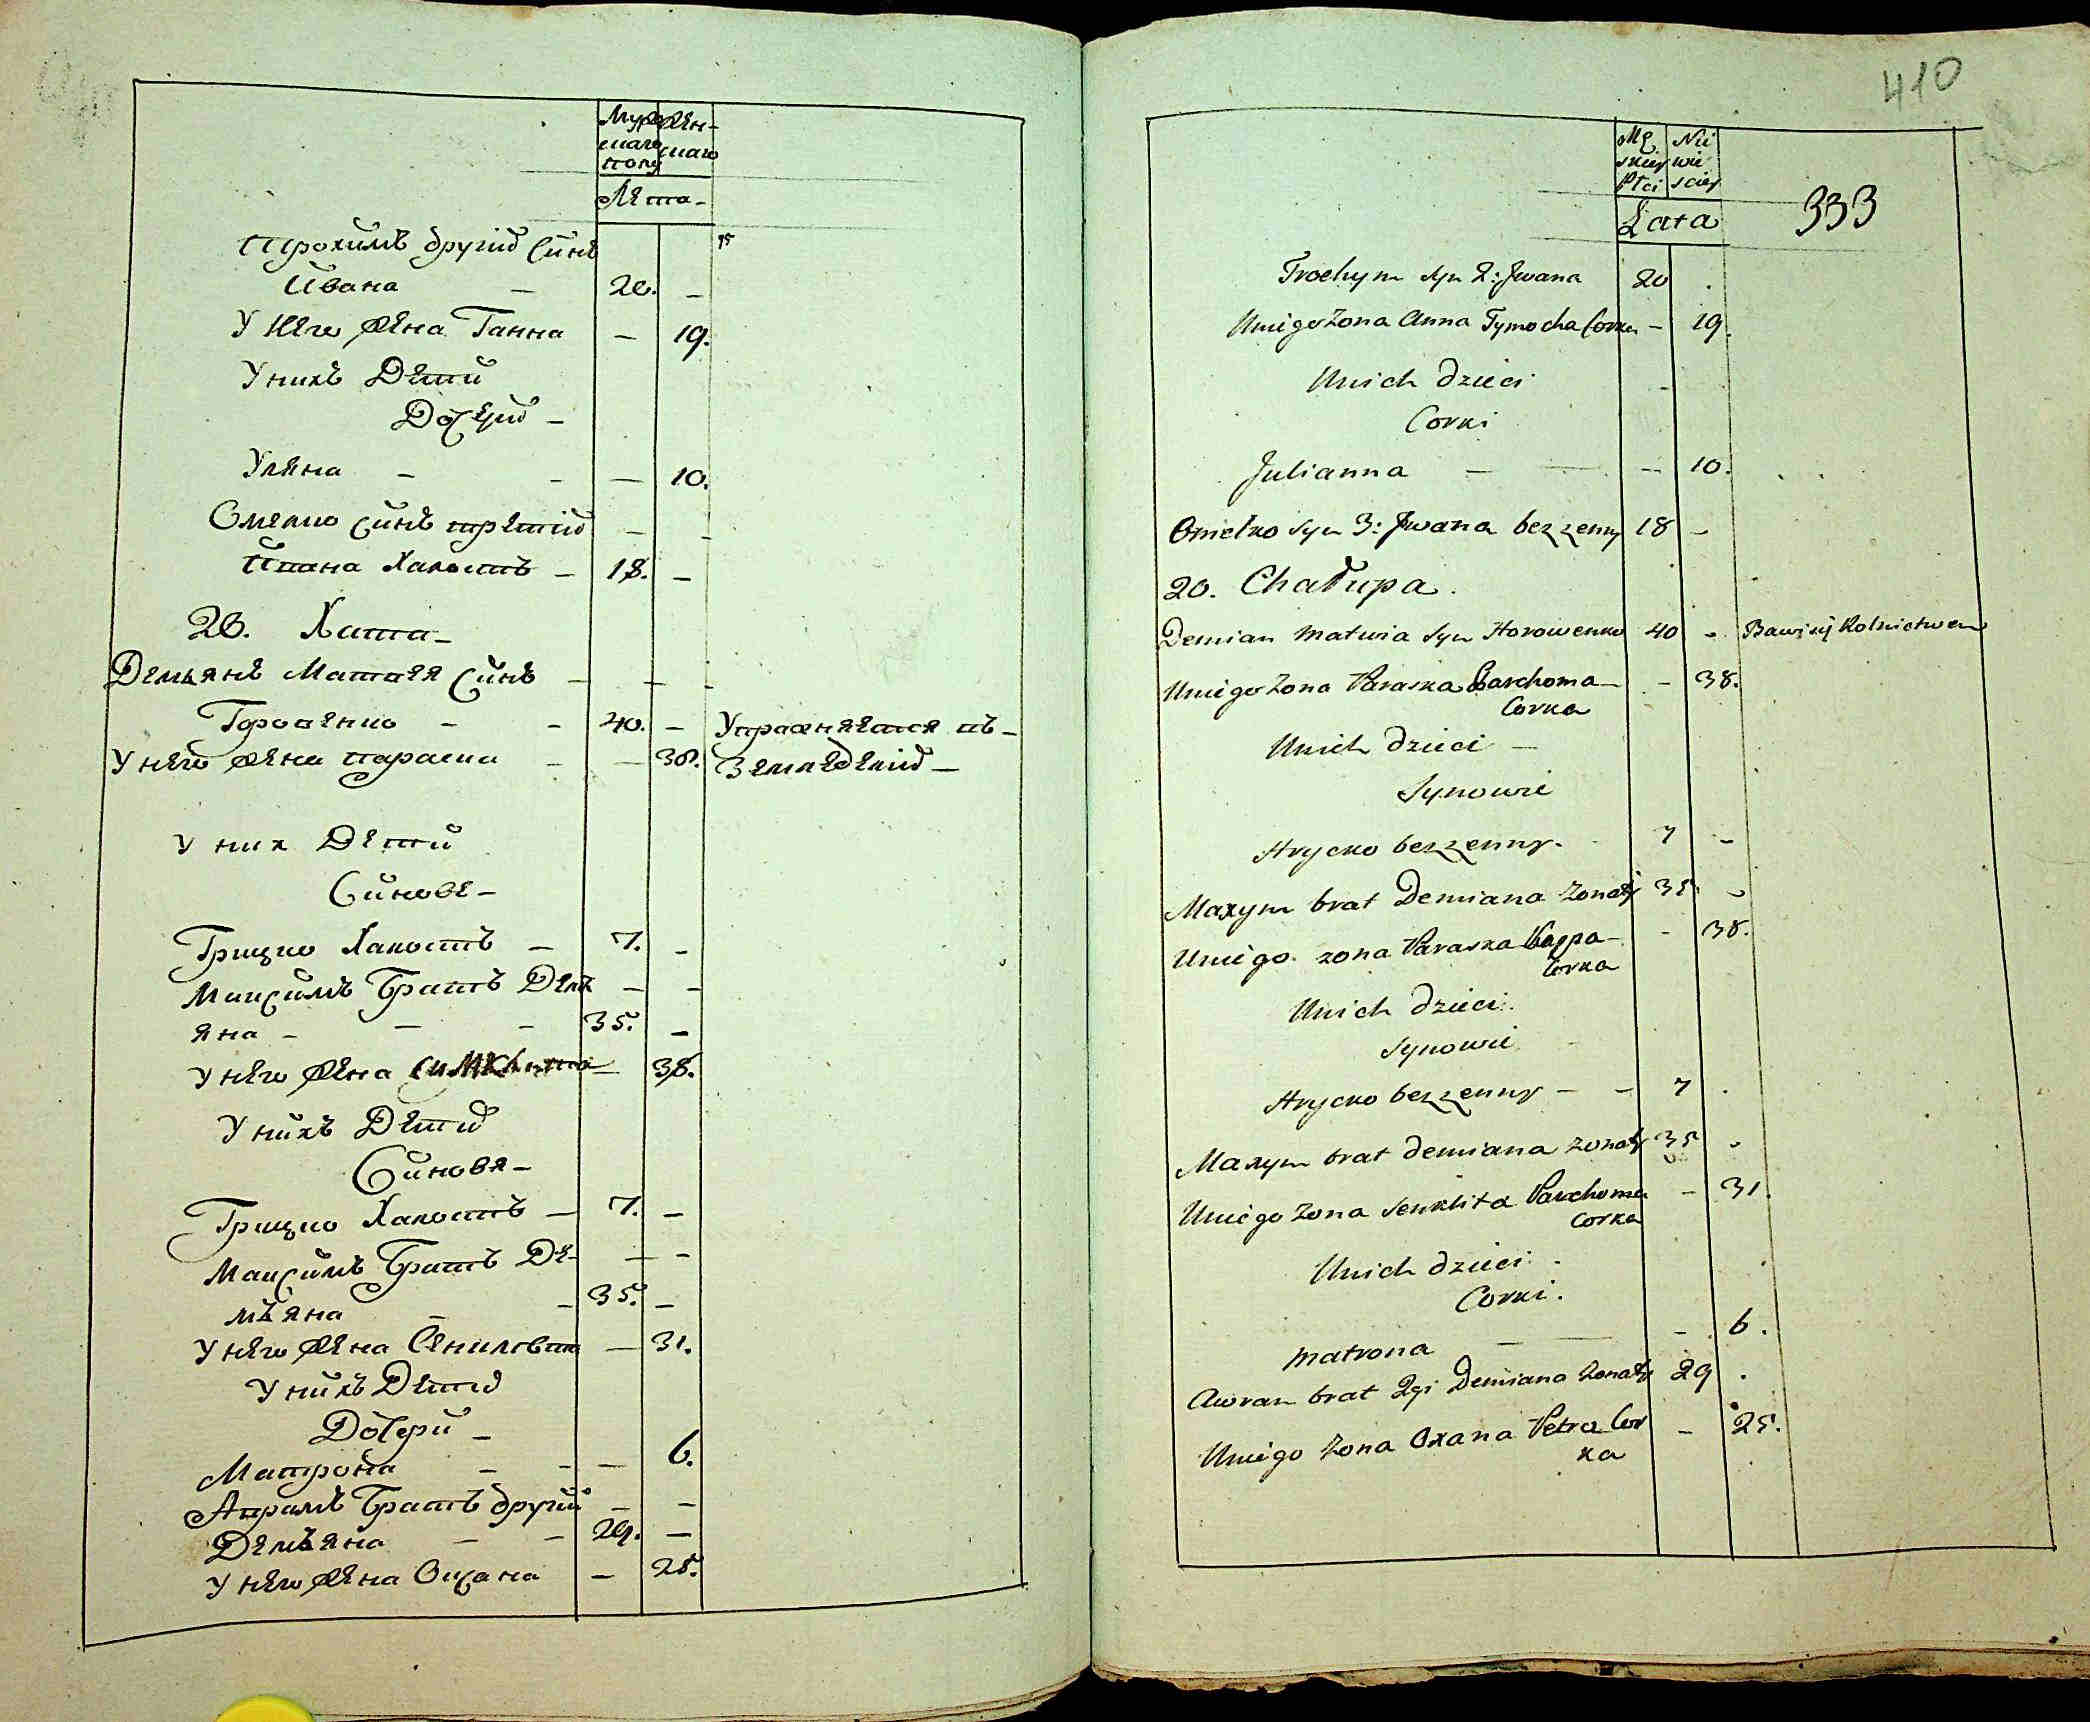 Муже
скаго
полу
Жен-
скаго
Лета-
Трохимъ другій Синъ
Ивана - 20. -
У Него Жена Ганна - 19.
У нихъ Дети
Дочери -
Уляна - - - 10.
Омелко Синъ третій - -
Ивана Холостъ - 18. -
20. Хата -
Демьянъ Матвея Синъ - - -
Горовенко - - 40. - Упражняется въ -
У него Жена Параска - - 38. Земледелій -
У них Дети
Синове -
Грицко Холостъ - 7. -
Максимъ Братъ Демъ - -
яна - - - 35. -
У него Жена - 38.
У нихъ Дети
Синовя -
Грицко Холостъ - 7. -
Максимъ Братъ Де- - -
мьяна - - 35. -
У него Жена - 31.
У нихъ Дети
Дочери -
Матрона - - - 6.
Аврамъ Братъ другій - -
Демьяна - - 29. -
У него Жена Оксана - 25.
410
Mę
skiey
Płci
Nie
wie
sciey
333
Lata
Trochym syn 2: Jwana 20 .
Uniego Zona Anna Tymocha Corka - 19.
Unich dzieci -
Corki
Julianna - - - 10.
Omelko syn 3: Jwana bezzenny 18 -
20. Chałupa.
Demian Matwia syn Horowenko 40 - Bawiący Rolnictwem
Uniego Zona Paraska Parchoma - - 38.
Corka
Unich dzieci -
Synowie
Hrycko bezzenny. 7 -
Maxym brat Demiana Zonaty 35. -
Uniego zona Paraska - 38.
Corka
Unich dzieci.
Synowie
Hrycko bezzenny - - 7 .
Maxym brat demiana zonaty 35 -
Uniego Zona Senklita Parchoma - 31.
Corka
Unich dzieci.
Corki.
Matrona - - - 6.
Awram brat 2gi Demiana Zonaty 29 .
Uniego Zona Oxana Petra Cor - 25.
ka